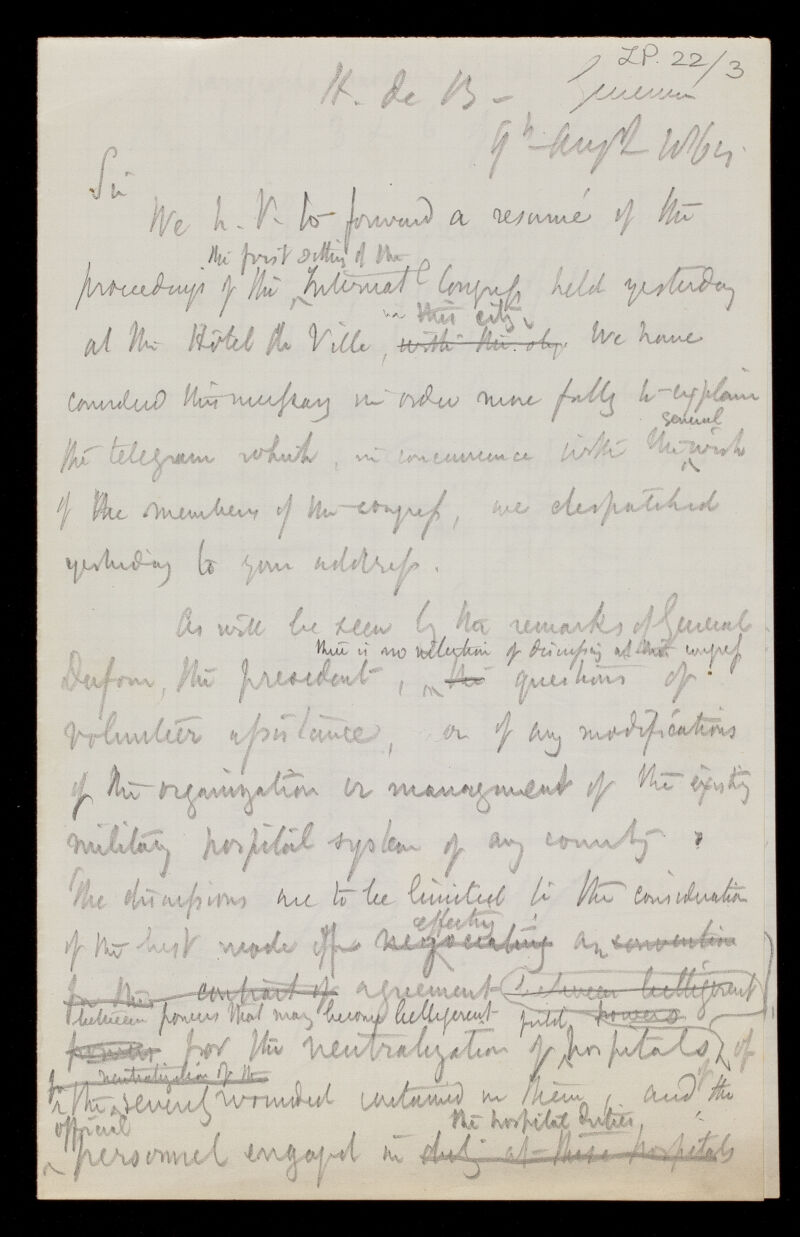 LP. 22/3
H. de B - Geneva
9th Augst 1864.
Sir
We h. t. to forward a resumé of the
the first sitting of the
proceedings of the Internatl Congress held yesterday
in this city,
at the Hôtel de Ville, with the obj. We have
considered this necessary in order more fully to explain
general
the telegram which, in concurrence with the wish
of the members of the congress, we despatched
yesterday to your address.
As will be seen by the remarks of General
there is no intention of discussing at this congress
Dufour, the president, the questions of
volunteer assistance, or of any modifications
of the organization or management of the existing
military hospital system of any country.
The discussions are to be limited to the consideration
effecting
of the best mode of negociating an convention
for this contract of agreement between belligerent
between powers that may become belligerent field powers
powers for the neutralization of hospitals, of
for neutralization of the of
the severely wounded contained in them, and the
official the hospital duties,
personnel engaged in duty at these hospitals